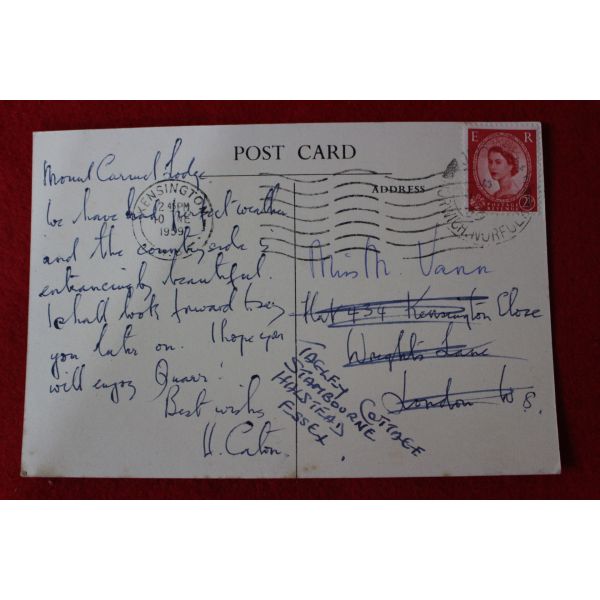 POST CARD
ADDRESS
Mount Carmel Lodge
We have had perfect weather
and the countryside is
entrancingly beautiful.
I shall look forward to seeing
you later on. I hope you
will enjoy Quarr!
Best wishes
H. Caton.
KENSINGTON
12 45 PM
10
1959
E R
POSTAGE
REVENUE
2½
NORWICH NORFOLK
Miss M. Vann
Flat 434 Kensington Close
Wright's Lane
London W 8.
TAGLEY COTTAGE
STAMBOURNE
HALSTEAD
ESSEX.